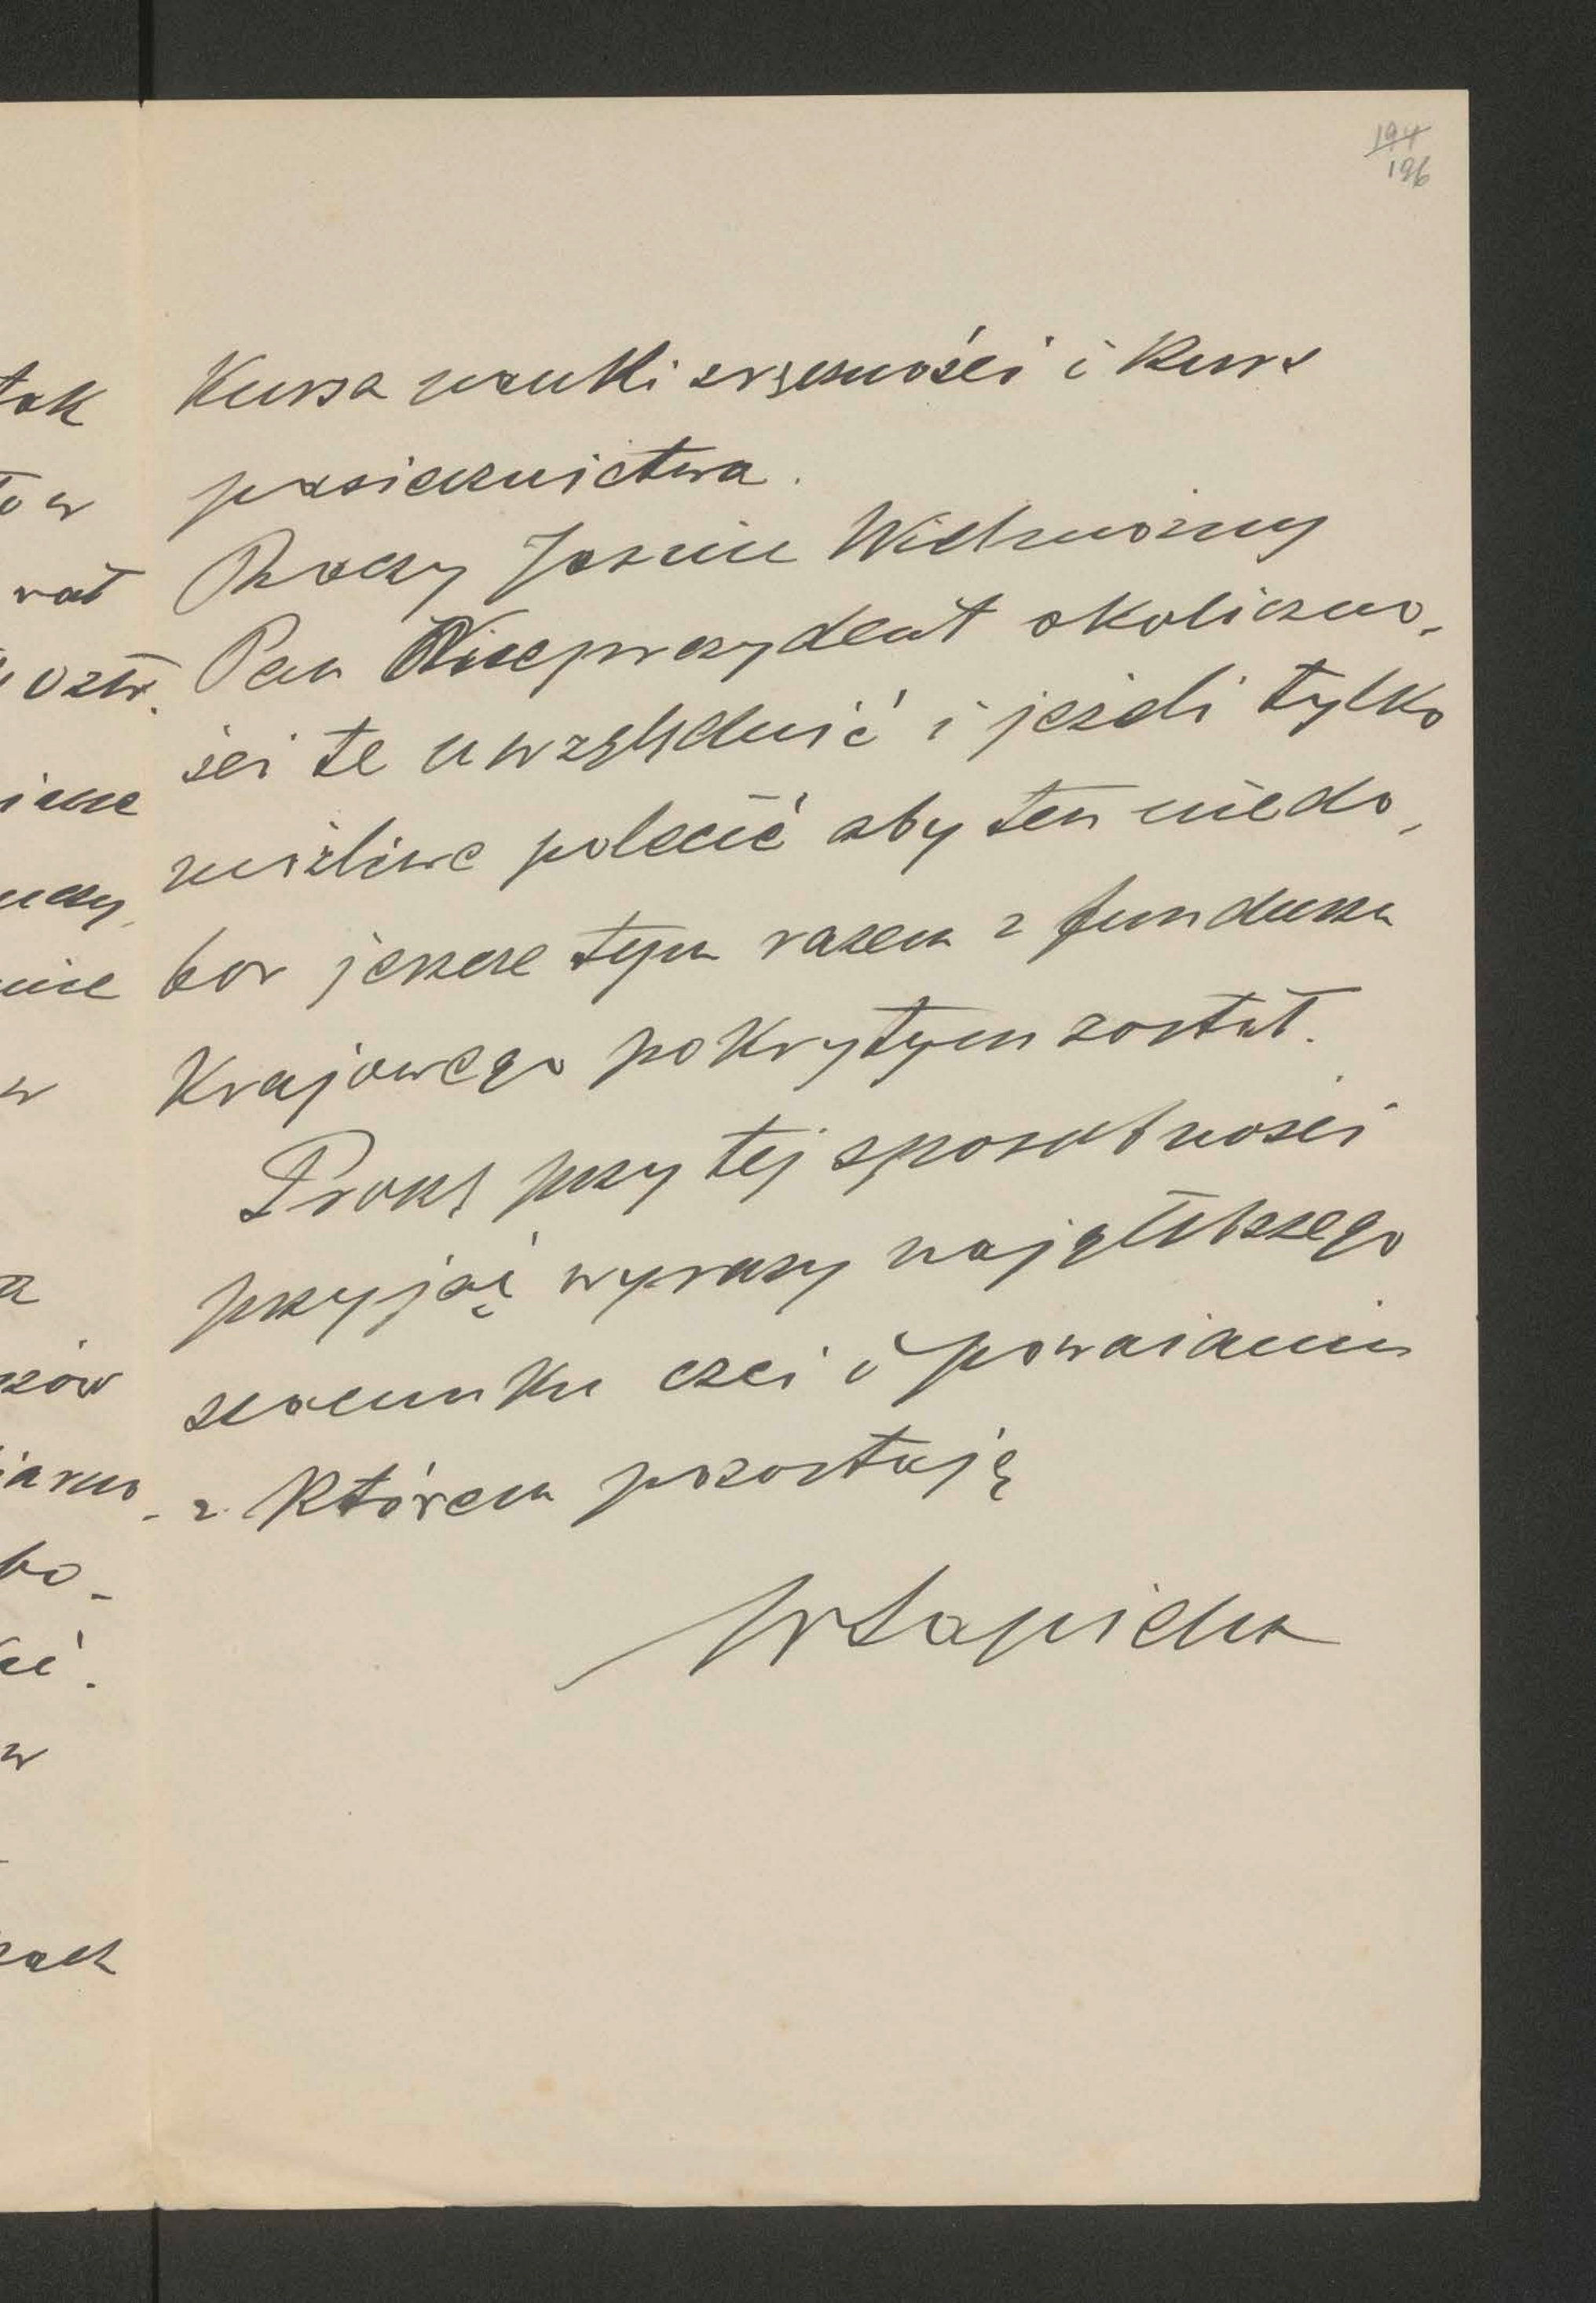 194
196
tak
ów
wał
iane
nie
w
a
ków
bo-
w
Kursa nauki zręczności i kurs
pasiecznictwa.
Raczy Jaśnie Wielmożny
Pan Wiceprezydent okoliczno-
ści te uwzględnić i jeżeli tylko
możliwe polecić aby ten niedo-
bor jeszcze tym razem z funduszu
Krajowego pokrytym został.
Proszę przy tej sposobności
przyjąć wyrazy najgłębszego
szacunku czci i poważania
z którem pozostaję
WSapieha